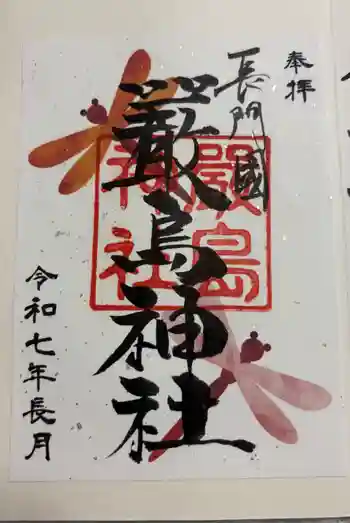 奉拝
長門國
厳島神社
厳島神社
令和七年長月